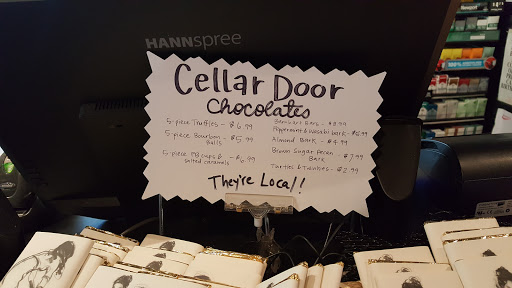 HANNspree
Cellar Door
Chocolates
5-piece Truffles - $6.99
5-piece Bourbon - $5.99
Balls
5-piece PB cups &
salted caramels - $6.99
Bark - $8.99
Peppermint & Wasabi bark - $6.99
Almond Bark - $4.99
Brown Sugar Pecan
Bark - $7.99
Turtles & - $2.99
They're Local!